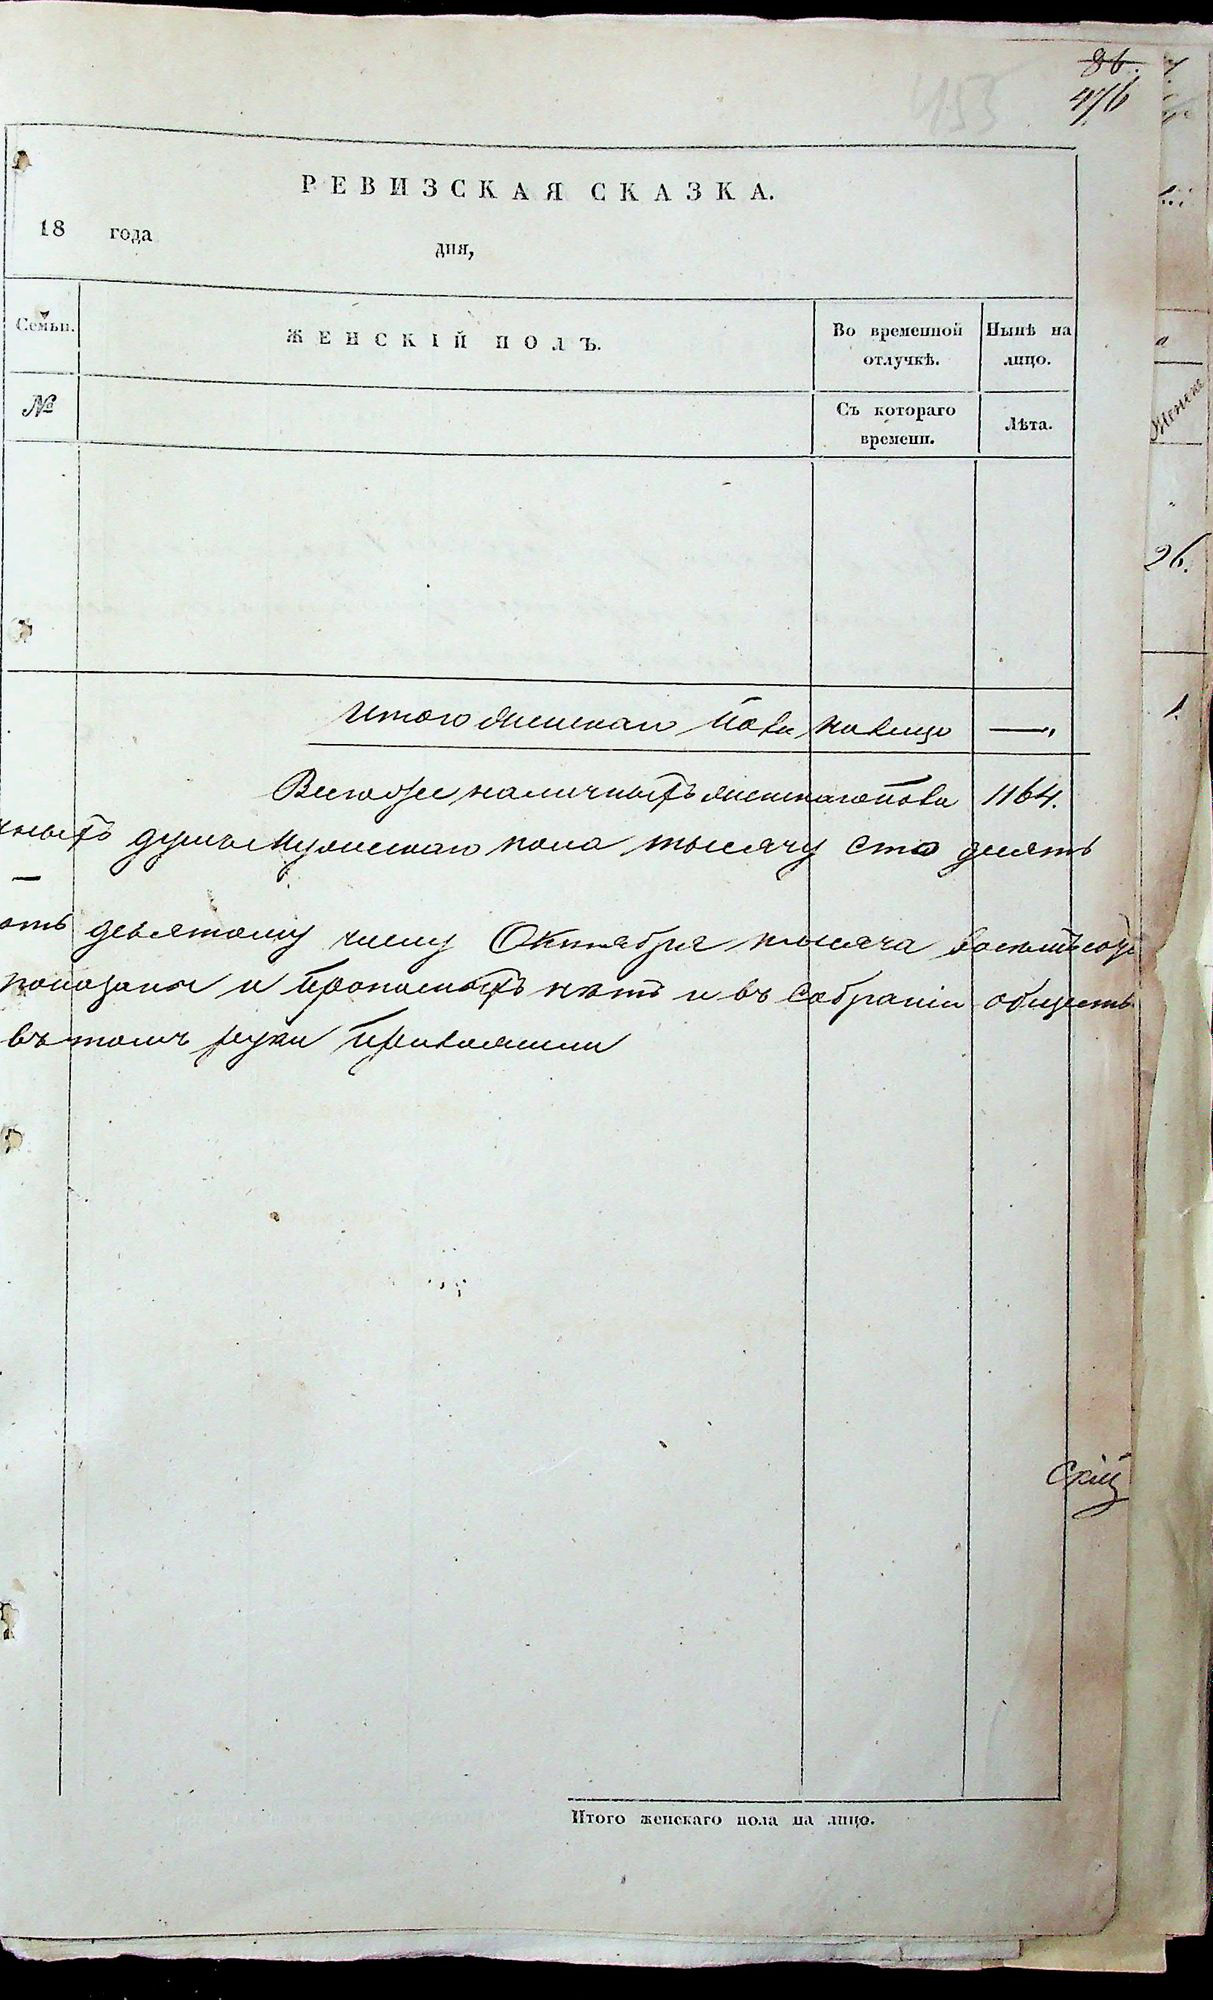 86.
476
453
РЕВИЗСКАЯ СКАЗКА.
18 года дня,
Семьи. ЖЕНСКІЙ ПОЛЪ. Во временной отлучкѣ. Нынѣ на лицо.
№ Съ котораго времени. Лѣта.
Итого женскаго пола налицо —.
Всегоже наличныхъ женскагопола 1164.
чныхъ душъ мужескаго пола тысячу сто десять
девятому числу Октября тысяча восемьсотъ
показаны и прописныхъ нѣтъ и въ собраніи обществ
въ томъ руки приложили
скій
Итого женскаго пола на лицо.
Женск
26.
1.